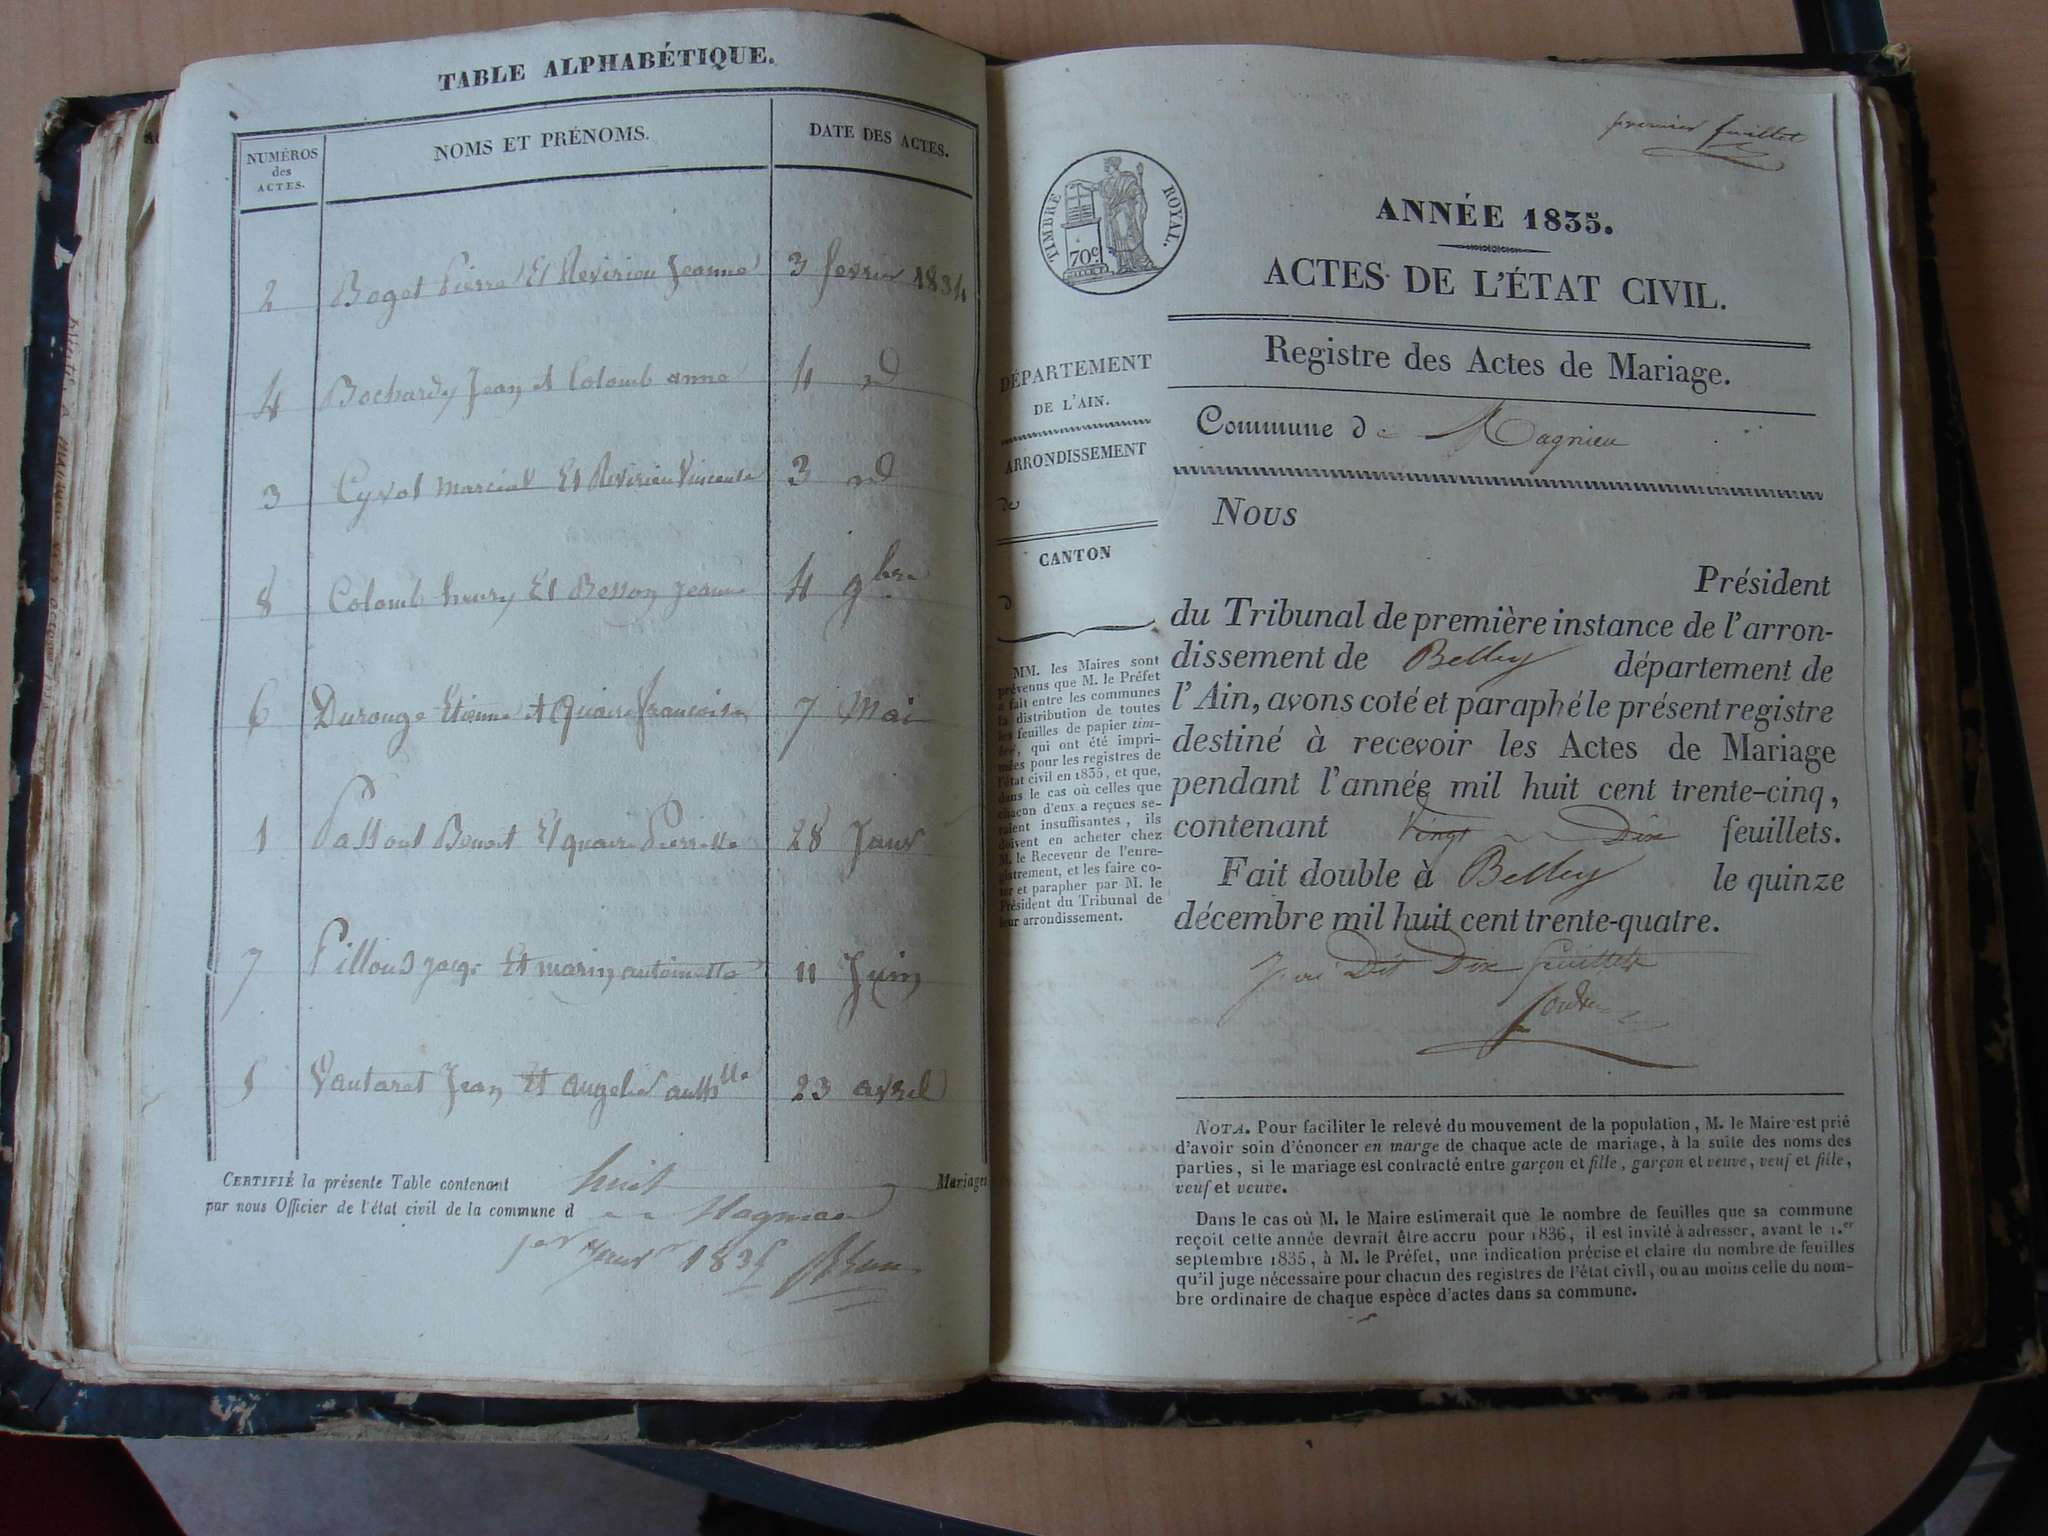 TABLE ALPHABÉTIQUE.
NUMÉROS
des
ACTES.
NOMS ET PRÉNOMS.
DATE DES ACTES.
2 Bogat Pierre Et Revirieu Jeanne 3 fevrier 1834
4 Bochardy Jean et Colomb anne 4 nd
3 Cyvot marcial Et Revirieu Vincente 3 nd
8 Colomb henry Et Besson jeanne 4 9bre
6 Durouge Etienne et Quaire francoise 7 Mai
1 Passout Benoit Et quaire Pierrette 28 Janv
7 Pilloud jacqs Et marin antoinette 11 Juin
5 Vautaret Jean Et angelier 23 avril
CERTIFIÉ la présente Table contenant huit Mariages
par nous Officier de l'état civil de la commune d e Magnieu
1er Janvr 1835
premier feuillet
TIMBRE ROYAL.
70c
ANNÉE 1835.
ACTES DE L'ÉTAT CIVIL.
Registre des Actes de Mariage.
Commune de Magnieu
DÉPARTEMENT
DE L'AIN.
ARRONDISSEMENT
de
CANTON
d
MM. les Maires sont
prévenus que M. le Préfet
a fait entre les communes
la distribution de toutes
les feuilles de papier tim-
bré, qui ont été impri-
mées pour les registres de
l'état civil en 1835, et que,
dans le cas où celles que
chacun d'eux a reçues se-
raient insuffisantes, ils
doivent en acheter chez
M. le Receveur de l'enre-
gistrement, et les faire co-
ter et parapher par M. le
Président du Tribunal de
leur arrondissement.
Nous
Président
du Tribunal de première instance de l'arron-
dissement de Belley département de
l'Ain, avons coté et paraphé le présent registre
destiné à recevoir les Actes de Mariage
pendant l'année mil huit cent trente-cinq,
contenant Vingt Dix feuillets.
Fait double à Belley le quinze
décembre mil huit cent trente-quatre.
Dit Dix feuillets
NOTA. Pour faciliter le relevé du mouvement de la population, M. le Maire est prié
d'avoir soin d'énoncer en marge de chaque acte de mariage, à la suite des noms des
parties, si le mariage est contracté entre garçon et fille, garçon et veuve, veuf et fille,
veuf et veuve.
Dans le cas où M. le Maire estimerait que le nombre de feuilles que sa commune
reçoit cette année devrait être accru pour 1836, il est invité à adresser, avant le 1.er
septembre 1835, à M. le Préfet, une indication précise et claire du nombre de feuilles
qu'il juge nécessaire pour chacun des registres de l'état civil, ou au moins celle du nom-
bre ordinaire de chaque espèce d'actes dans sa commune.